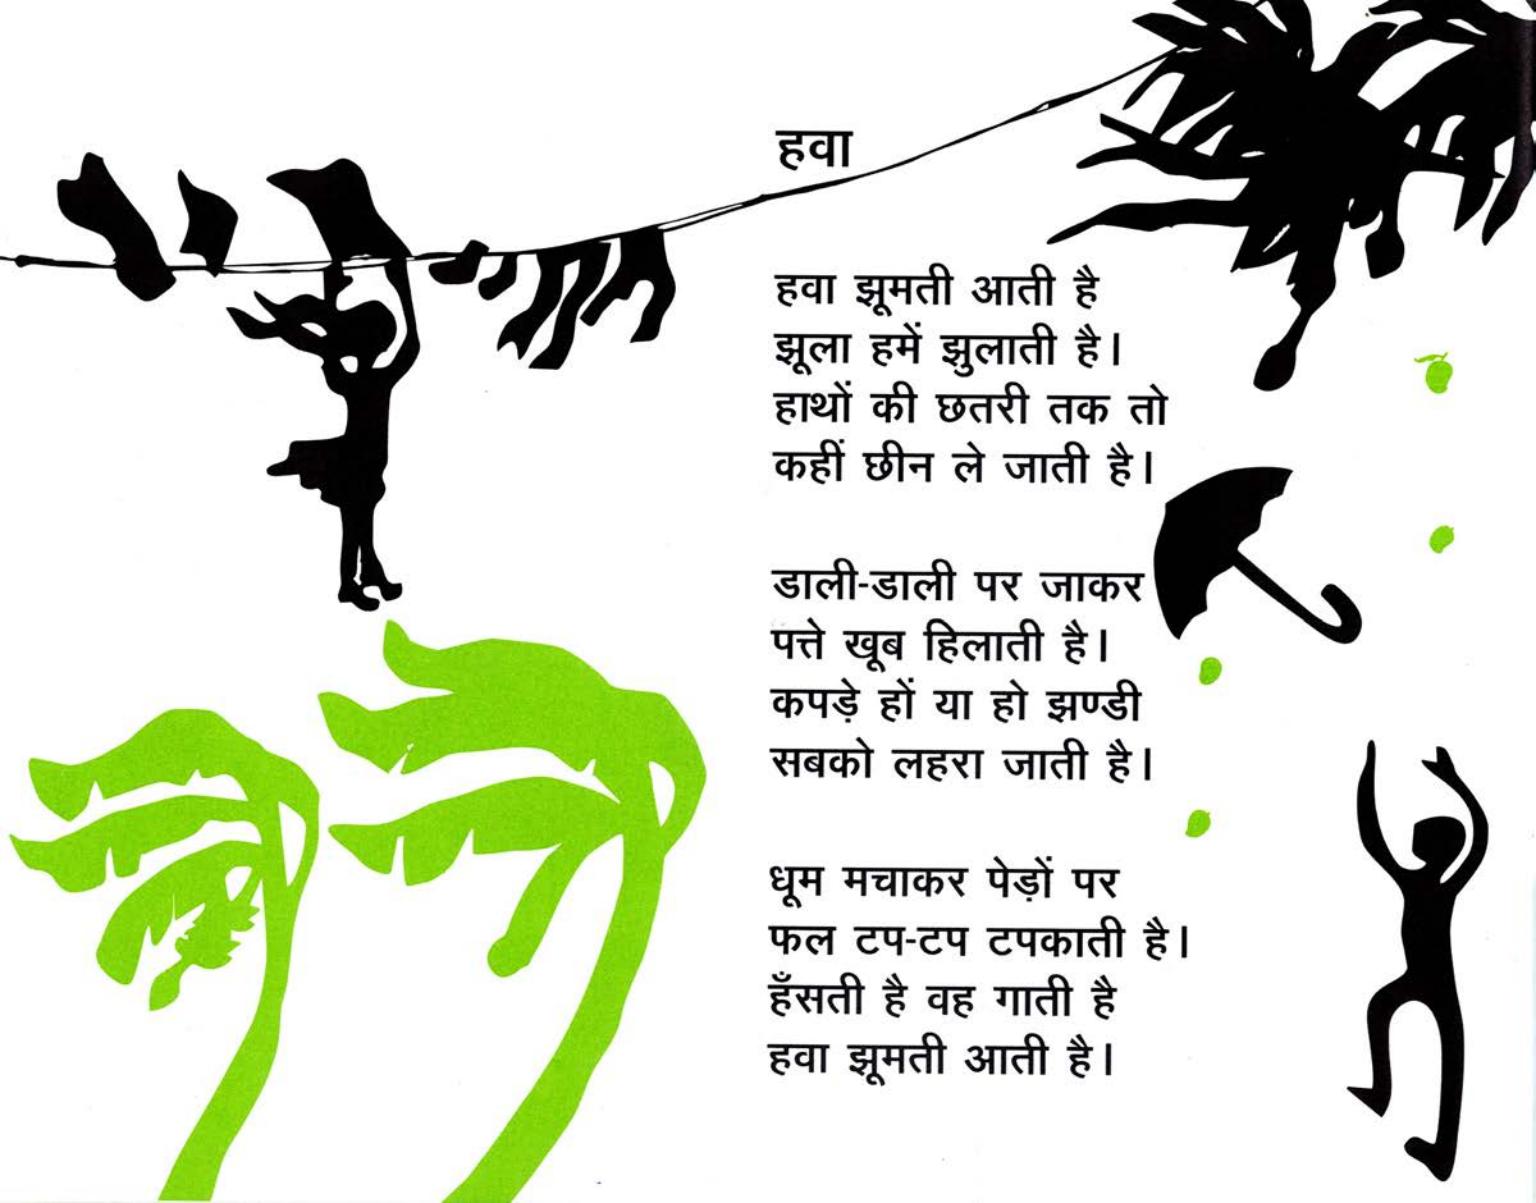 हवा
हवा झूमती आती है
झूला हमें झुलाती है।
हाथों की छतरी तक तो
कहीं छीन ले जाती है।
डाली-डाली पर जाकर
पत्ते खूब हिलाती है।
कपड़े हों या हो झण्डी
सबको लहरा जाती है।
धूम मचाकर पेड़ों पर
फल टप-टप टपकाती है।
हँसती है वह गाती है
हवा झूमती आती है।